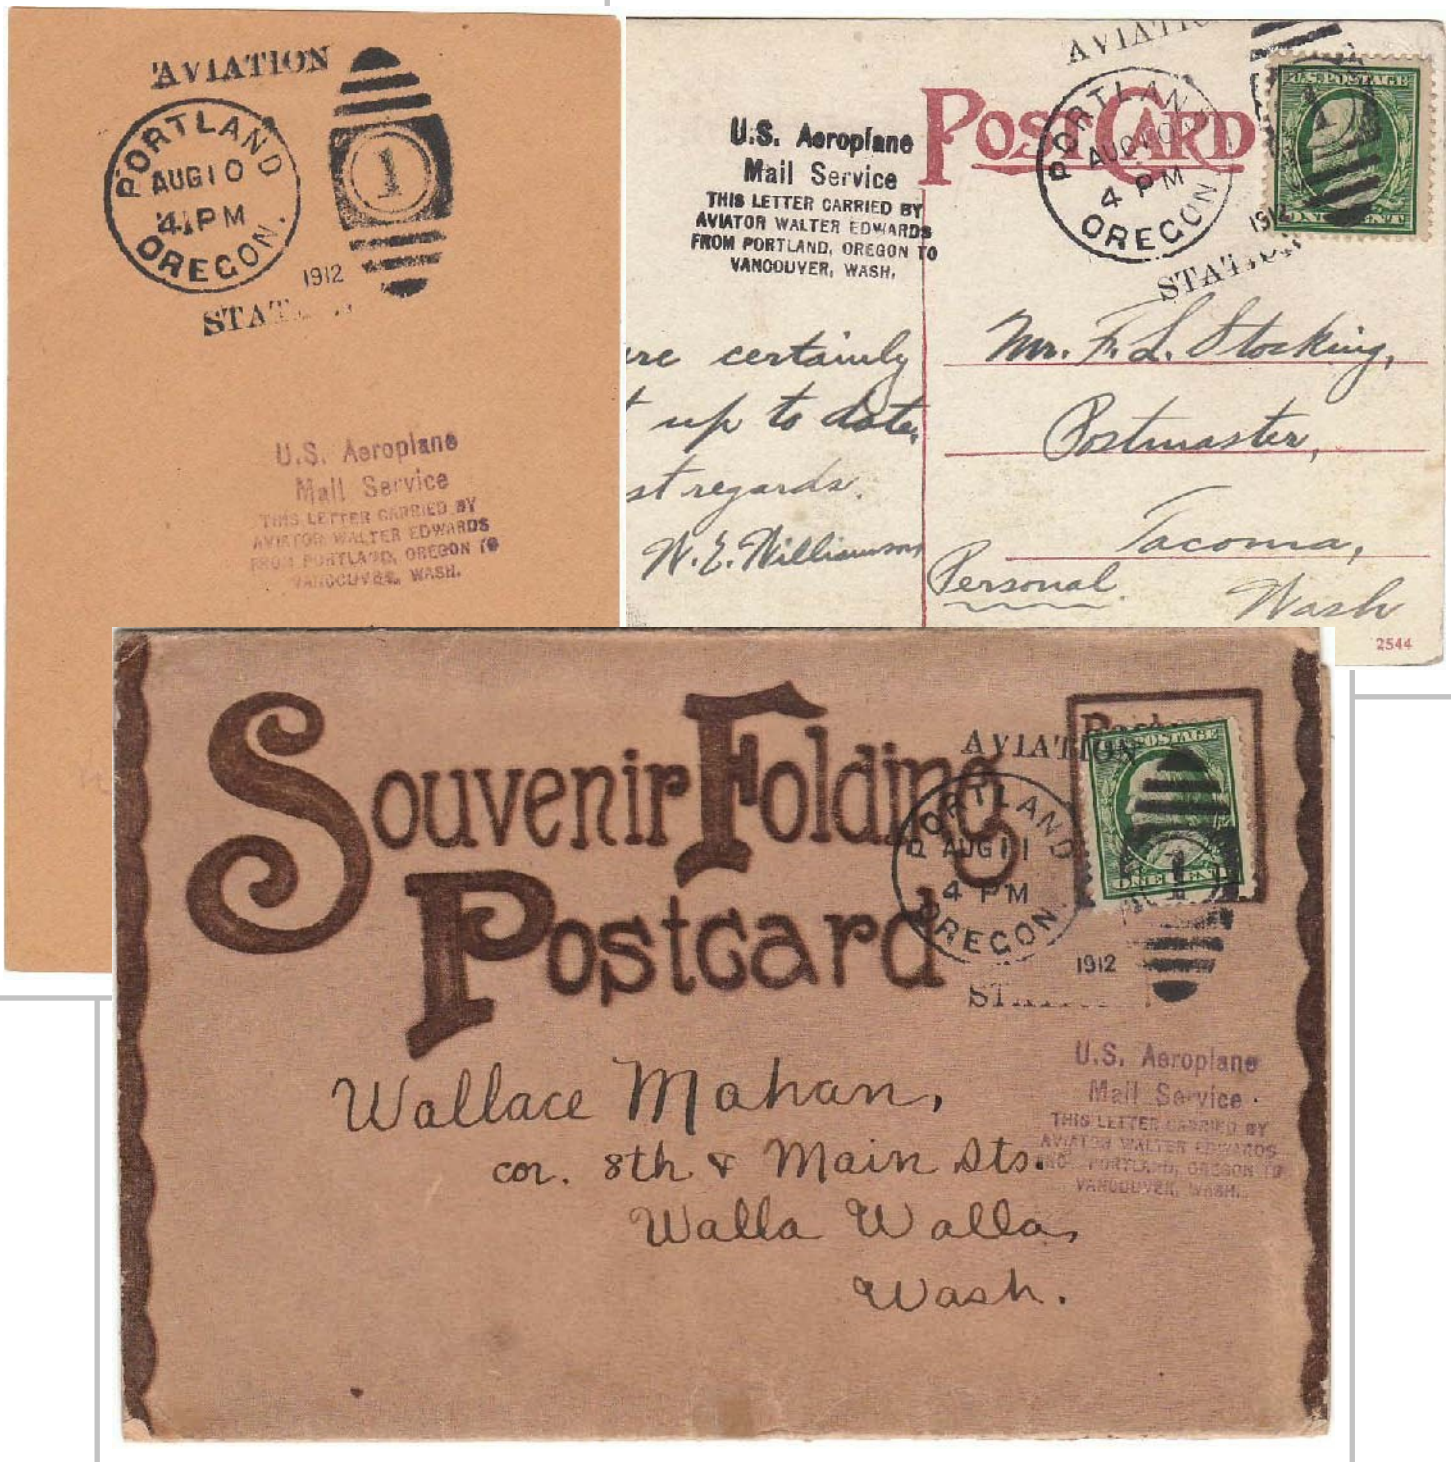 AVIATION
PORTLAND
AUG 10
4 PM
OREGON.
1
1912
U.S. Aeroplane
Mail Service
THIS LETTER CARRIED BY
AVIATOR WALTER EDWARDS
FROM PORTLAND, OREGON TO
VANCOUVER, WASH.
POST CARD
U.S. Aeroplane
Mail Service
THIS LETTER CARRIED BY
AVIATOR WALTER EDWARDS
FROM PORTLAND, OREGON TO
VANCOUVER, WASH.
PORTLAND
4 PM
OREGON.
1912
U.S. POSTAGE
ONE CENT
certainly
up to date,
regards.
W. E. Williamson
Mr. F. L. Stocking,
Postmaster,
Tacoma,
Wash
Personal.
2544
Souvenir Folding
Postcard
AVIATION
PORTLAND
AUG 11
4 PM
OREGON.
1
1912
POSTAGE
ONE CENT
U.S. Aeroplane
Mail Service
THIS LETTER CARRIED BY
AVIATOR WALTER EDWARDS
PORTLAND, OREGON TO
VANCOUVER, WASH.
Wallace Mahan,
cor. 8th & Main Sts.
Walla Walla,
Wash.